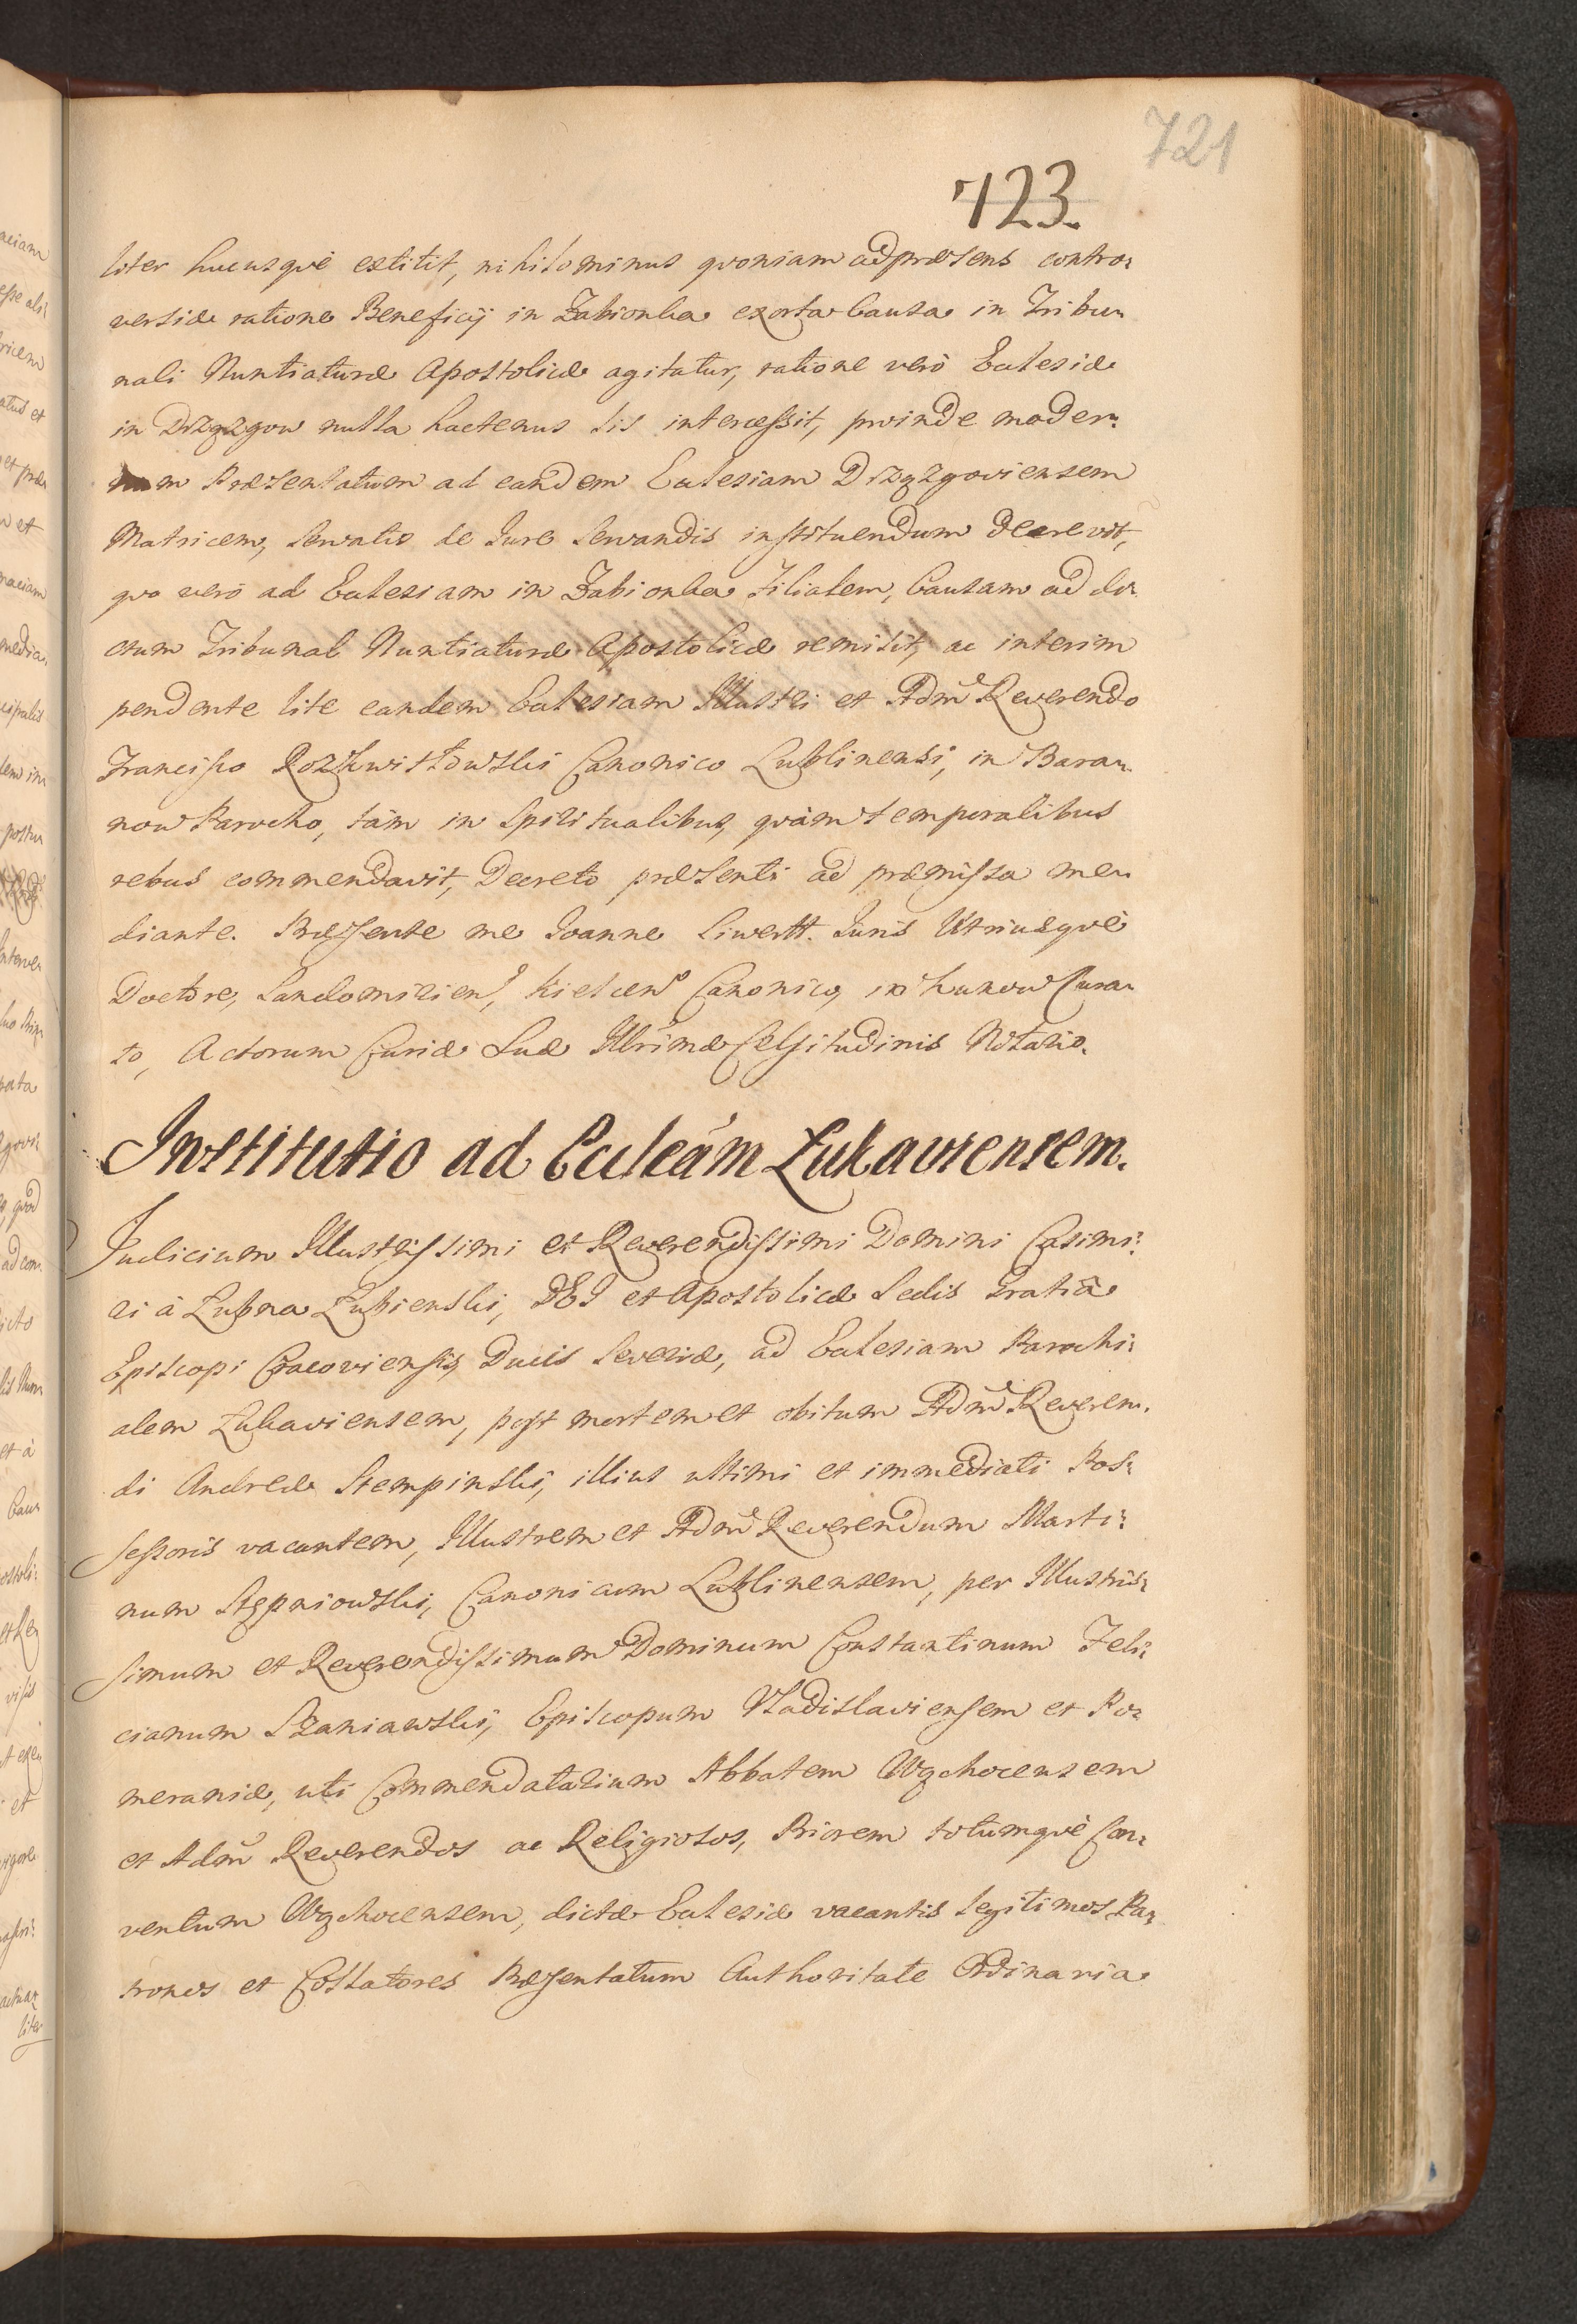 721
723.
liter hucusquè extitit, nihilominus quoniam ad præsens contro:
versiæ ratione Beneficij in Żabionka exorta Causa in Tribu:
nali Nuntiaturæ Apostolicæ agitatur, ratione verò Ecclesiæ
in Drzązgow nulla hactenus lis intercessit, proinde moder:
num Præsentatum ad eandem Ecclesiam Drzązgoviensem
Matricem, servatis de Jure servandis instituendum decrevit,
quo verò ad Ecclesiam in Żabionka Filialem, Causam ad di:
ctum Tribunal Nuntiaturæ Apostolicæ remisit, ac interim
pendente lite eandem Ecclesiam Illustri et Adm̃ Reverendo
Francisco Rozkwistowski Canonico Lublinensi, in Bara:
now Parocho, tàm in Spiritualibus, quàm temporalibus
rebus commendavit, Decreto præsenti ad præmissa me:
diante. Præsente me Joanne Siwertt. Juris Utriusquè
Doctore, Sandomirien, Kielcen Canonico, in Kunow Cura:
to, Actorum Curiæ Suæ Illrimæ Celsitudinis Notario.
Institutio ad Eccleãm Łukawiensem.
Judicium Illustrissimi et Reverendissimi Domini Casimi:
ri à Łubna Łubienski, DEI et Apostolicæ Sedis Gratiâ
Episcopi Cracoviensis, Ducis Severiæ, ad Ecclesiam Parochi:
alem Łukawiensem, post mortem et obitum Adm̃ Reveren:
di Andreæ Stempinski, illius ultimi et immediati Pos:
sessoris vacantem, Illustrem et Adm̃ Reverendum Marti:
num Stępniowski, Canonicum Lublinensem, per Illustris:
simum et Reverendissimum Dominum Constantinum Feli:
cianum Szaniawski, Episcopum Vladislaviensem et Po:
meraniæ, uti Commendatarium Abbatem Wąchocensem
et Adm̃ Reverendos ac Religiosos, Priorem totumquè Con:
ventum Wąchocensem, dictæ Ecclesiæ vacantis legitimos Pa:
tronos et Collatores Præsentatum Authoritate Ordinaria